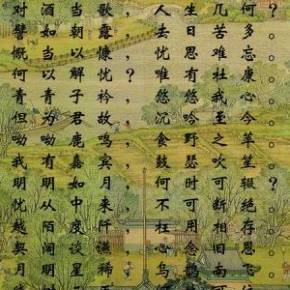 对酒当歌，人生几何？
譬如朝露，去日苦多。
慨当以慷，忧思难忘。
何以解忧？唯有杜康。
青青子衿，悠悠我心。
但为君故，沉吟至今。
呦呦鹿鸣，食野之苹。
我有嘉宾，鼓瑟吹笙。
明明如月，何时可辍？
忧从中来，不可断绝。
越陌度阡，枉用相存。
契阔谈讌，心念旧恩。
月明星稀，乌鹊南飞。